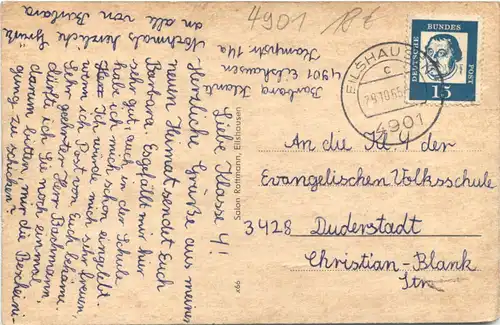 4901
Nochmals herzliche Grüße
an alle von Barbara
Barbara
4901 Eilshausen
Kampstr. 14a
Liebe Klasse 4!
Herzliche Grüße aus meiner
neuen Heimat sendet Euch
Barbara. Es gefällt mir hier
sehr gut auch in der Schule
habe ich mich schon eingelebt.
Ich würde mich sehr freuen,
wenn ich Post von Euch bekäme.
Sehr geehrter Herr Bachmann,
dürfte ich Sie noch einmal
darum bitten, mir die Bescheini-
gung zu schicken?
Salon Rathmann, Eilshausen
466
DEUTSCHE
BUNDES
POST
15
EILSHAUSEN
c
29.10.65
4901
An die Kl. 4 der
Evangelischen Volksschule
3428 Duderstadt
Christian-Blank
Str.